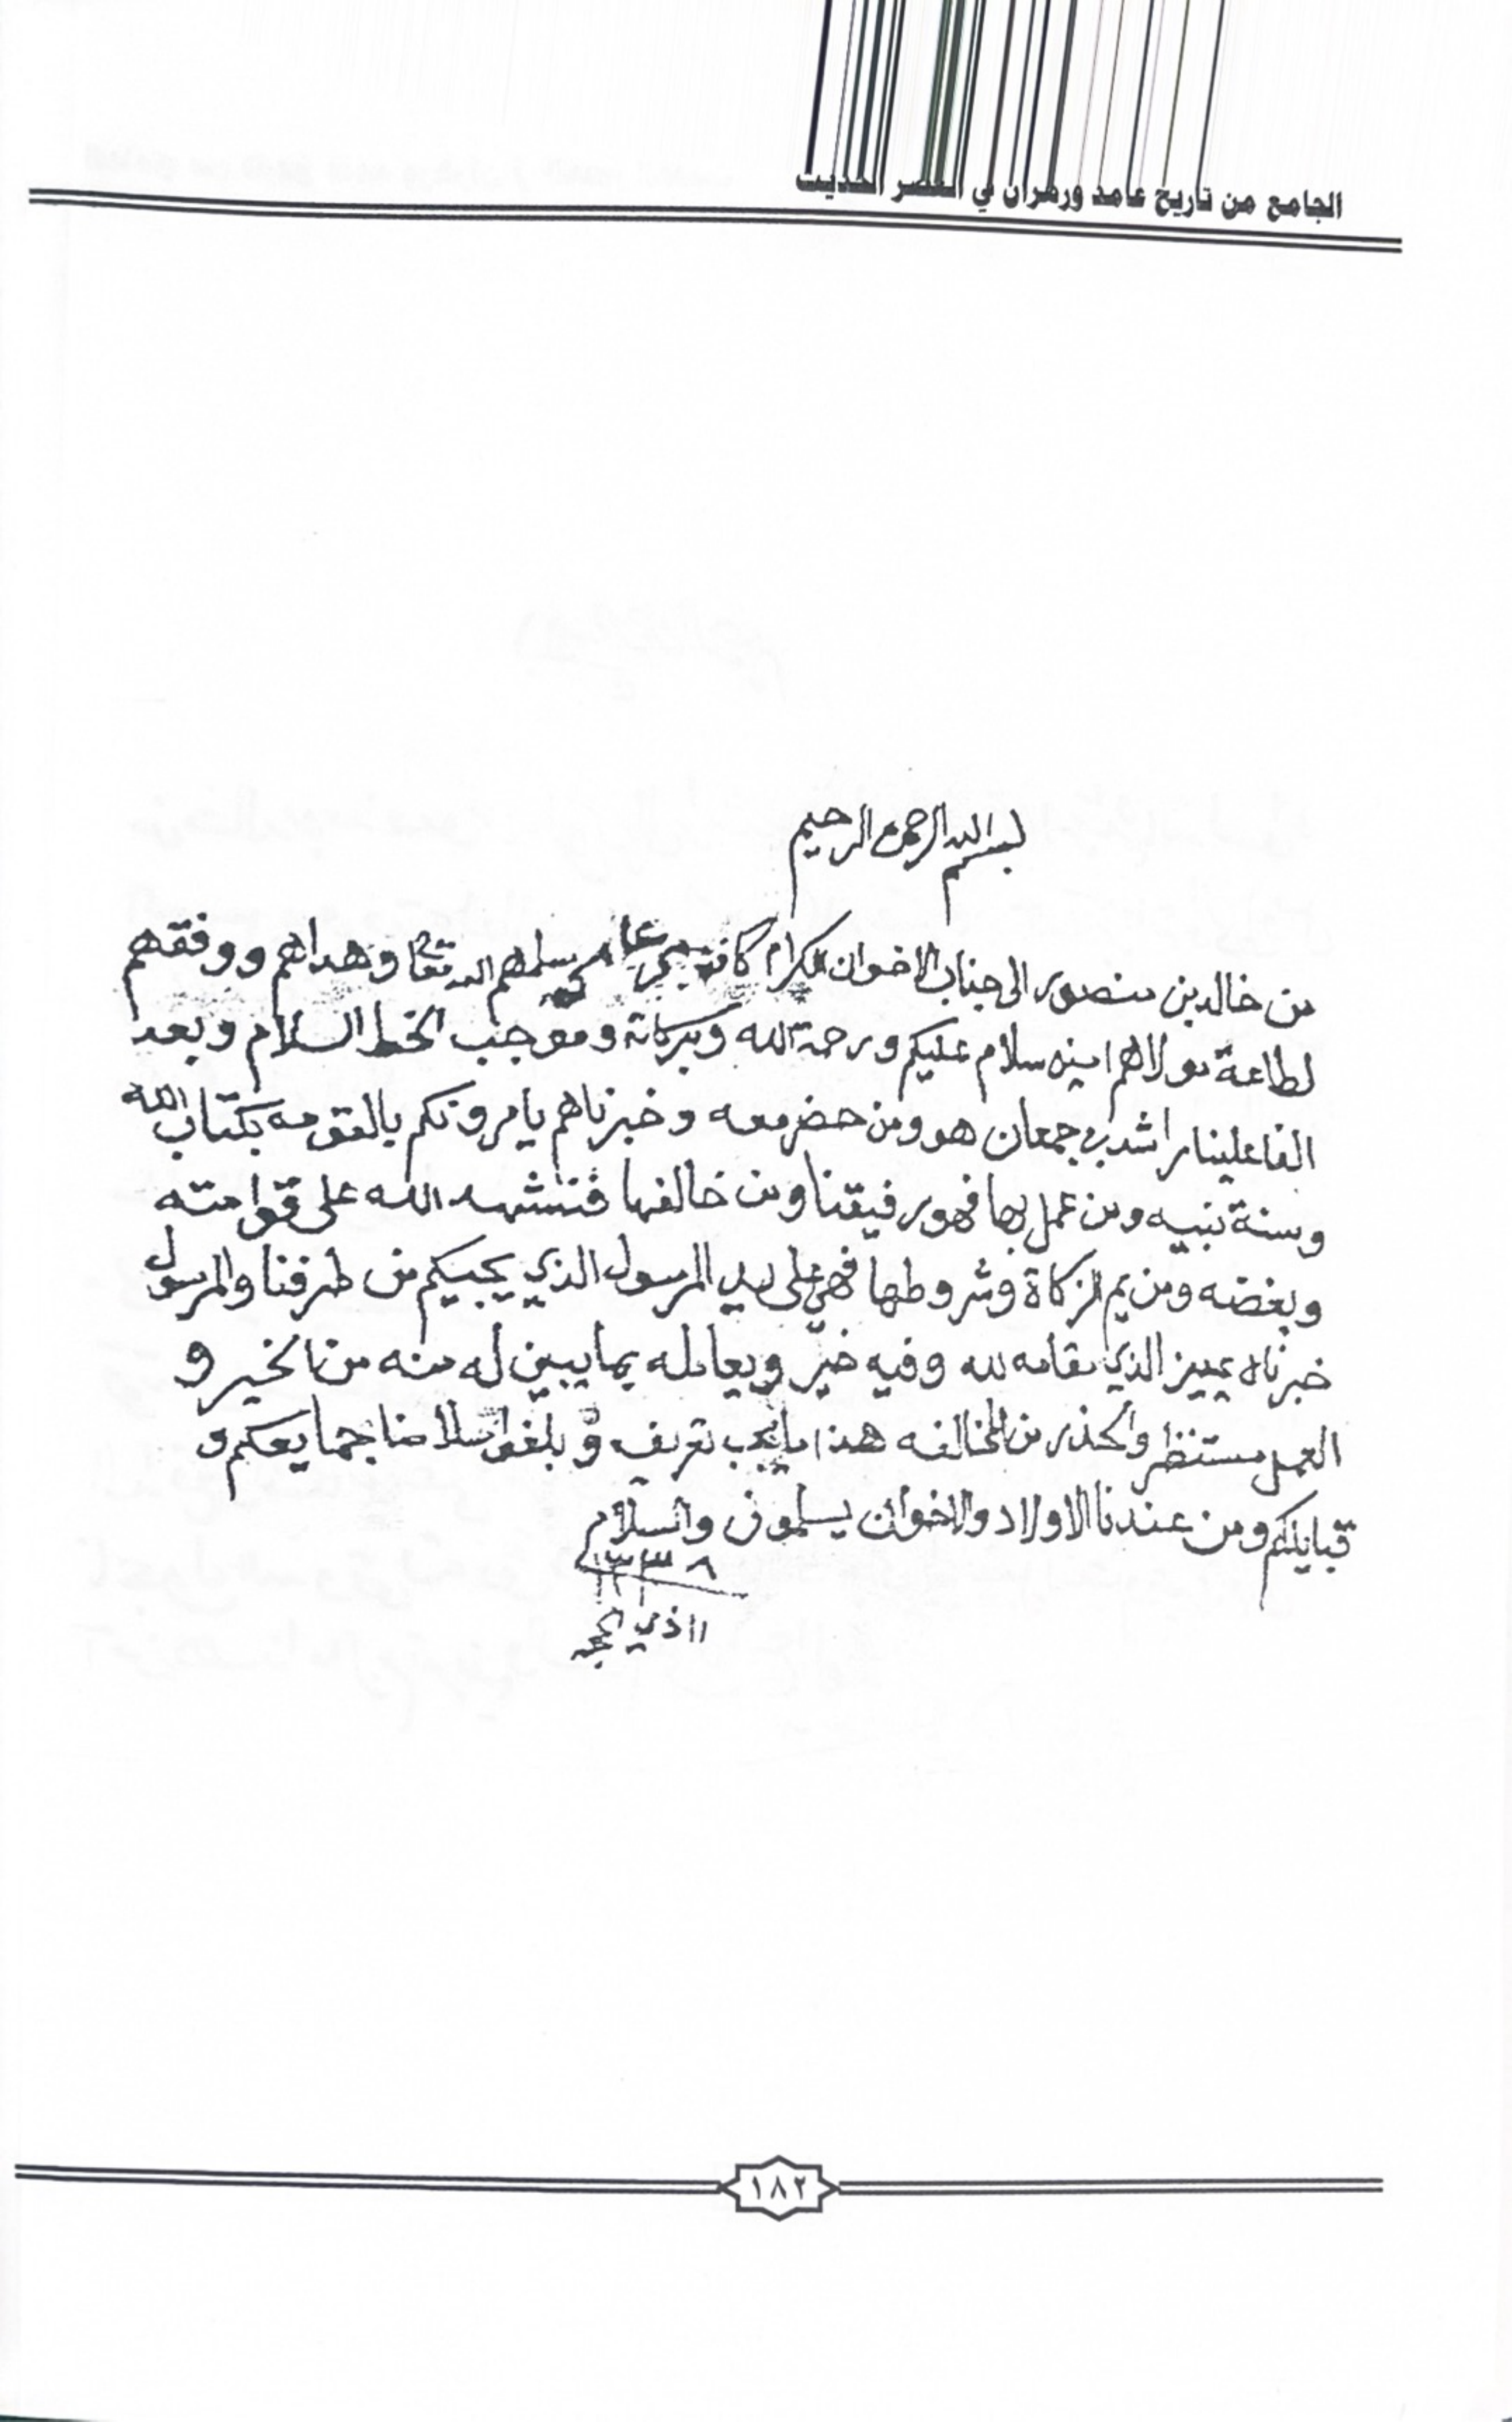 الجامع من تاريخ غامد وزهران في العصر الحديث
بسم الله الرحمن الرحيم
من خالد بن منصور الى جناب الاخوان الكرام كافة سلمهم الله تعالى وهداهم ووفقهم
لطاعة مولاهم امين سلام عليكم ورحمة الله وبركاته وموجب الخط السلام وبعد
الفا علينا راشد بن جمعان هو ومن حضر معه وخبرناهم يامرونكم بالقومه بكتاب الله
وسنة نبيه ومن عمل بها فهو رفيقنا ومن خالفها فنشهد الله على قوامته
وبغضه ومن يم الزكاة وشروطها فهي على يد المرسول الذي يجيكم من طرفنا والمرسول
خبرناه يميز الذي مقامه لله وفيه خير ويعامله بما يبين له منه من الخير و
العمل مستنظر والحذر من المخالفه هذا ما يجب تعريف وبلغوا سلامنا جمايعكم و
قبايلكم ومن عندنا الاولاد والاخوان يسلمون والسلام
١٣٣٨
١١ ذي الحجه
١٨٢